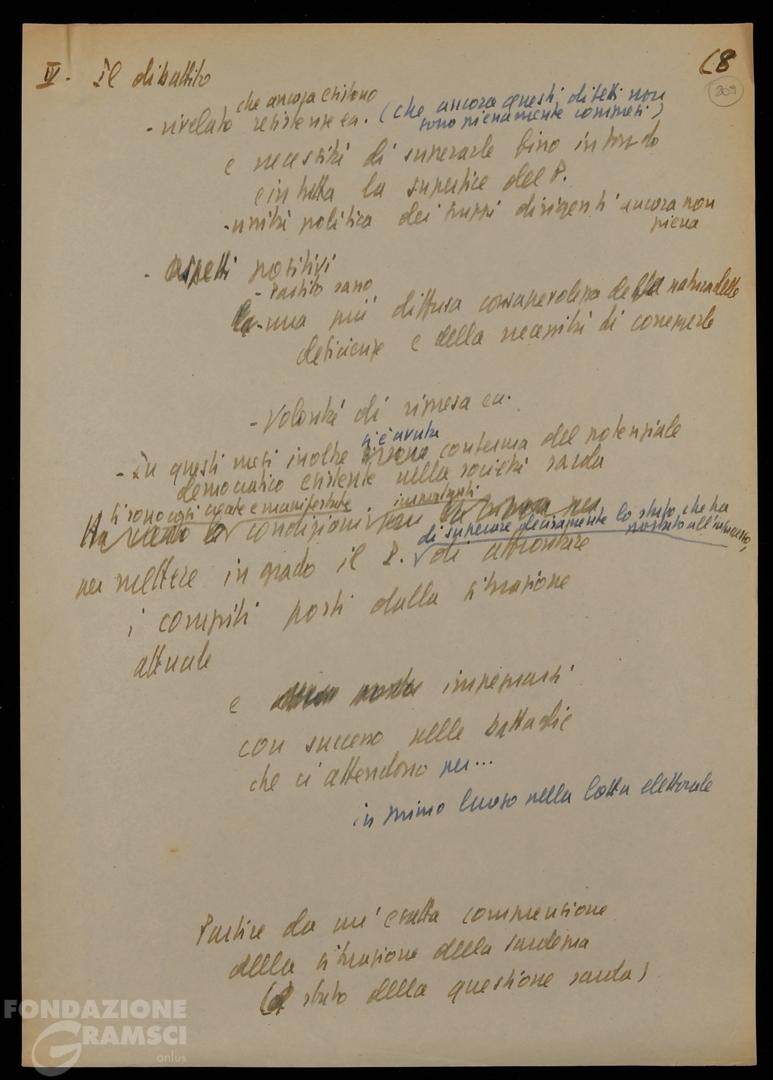 IV. Il dibattito
68
209
che ancora esistono
- rivelato resistenze ecc. (che ancora questi difetti non
sono pienamente corretti)
e necessità di superarle sino in fondo
e in tutta la superficie del P.
- unità politica dei gruppi dirigenti ancora non
piena
- aspetti positivi
- Partito sano
- una più diffusa consapevolezza della natura delle
deficienze e della necessità di correggerle
- Volontà di ripresa ecc.
si è avuta
- In questi mesi inoltre conferma del potenziale
democratico esistente nella società sarda
si sono così create e manifestate importanti
condizioni
di superare decisamente lo stato, che ha
portato all'insuccesso,
per mettere in grado il P. di affrontare
i compiti posti dalla situazione
attuale
e impegnarsi
con successo nelle battaglie
che ci attendono per...
in primo luogo nella lotta elettorale
Partire da un'esatta comprensione
della situazione della Sardegna
(lo stato della questione sarda)
FONDAZIONE
GRAMSCI
onlus